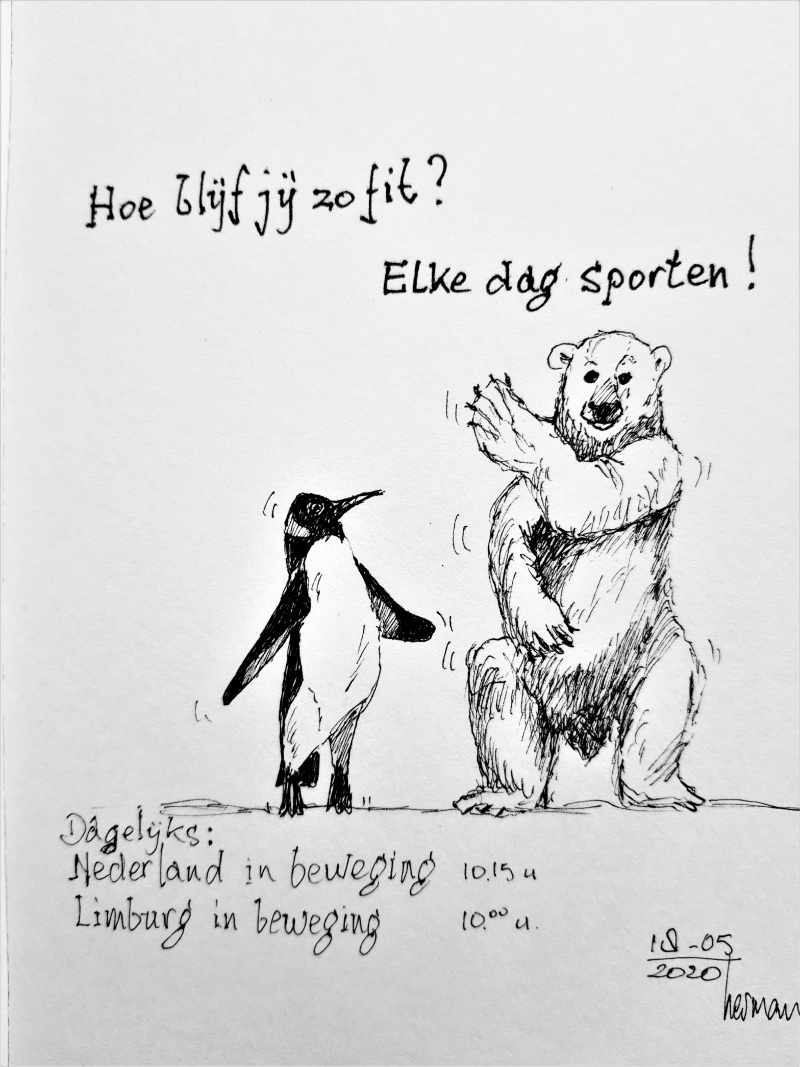 Hoe blijf jij zo fit?
Elke dag sporten!
Dagelijks:
Nederland in beweging 10.15 u
Limburg in beweging 10.00 u.
18-05
2020
herman